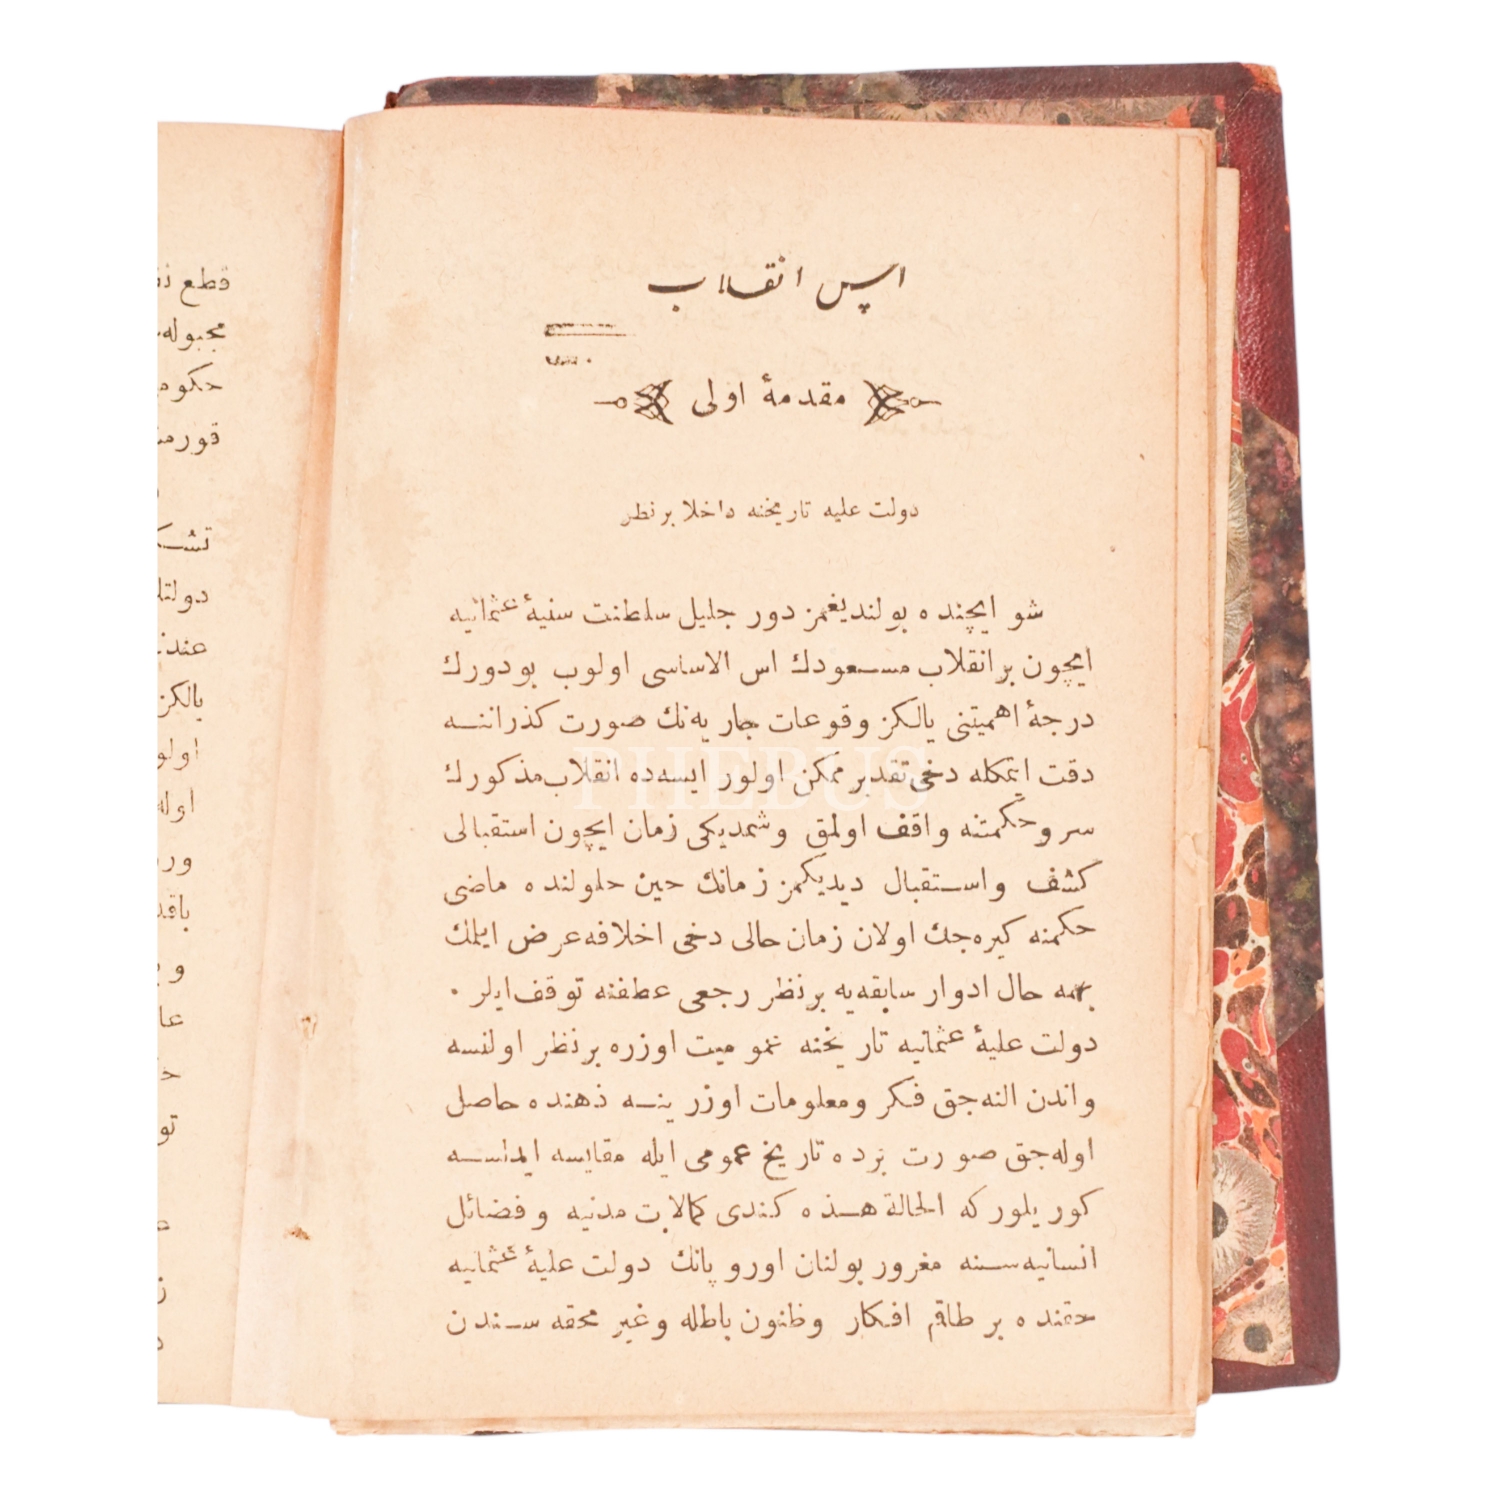 اسس انقلاب
مقدمهٔ اولی
دولت علیه تاریخنه داخلا بر نظر
شو ایچنده بولندیغمز دور جلیل سلطنت سنیهٔ عثمانیه
ایچون بر انقلاب مسعودك اس الاساسی اولوب بو دورك
درجهٔ اهمیتنی یالکز وقوعات جاریه‌نك صورت کذراننه
دقت ایتمکله دخی تقدیر ممکن اولور ایسه‌ده انقلاب مذکورك
سر و حکمتنه واقف اولمق و شمدیکی زمان ایچون استقبالی
کشف و استقبال دیدیکمز زمانك حین حلولنده ماضی
حکمنه کیره‌جك اولان زمان حالی دخی اخلافه عرض ایلمك
بهمه حال ادوار سابقه‌یه بر نظر رجعی عطفنه توقف ایلر .
دولت علیهٔ عثمانیه تاریخنه عمومیت اوزره بر نظر اولنسه
واندن النه‌جق فکر و معلومات اوزرینه ذهنده حاصل
اوله‌جق صورت برده تاریخ عمومی ایله مقایسه ایدلسه
کوریلور که الحالة هذه کندی کمالات مدنیه و فضائل
انسانیه‌سنه مغرور بولنان اوروپانك دولت علیهٔ عثمانیه
حقنده بر طاقم افکار و ظنون باطله و غیر محقه سندن
قطع
مجبوله
حکوم
قورمش
دولتلـ
یالکز
اولو
PHEBUS